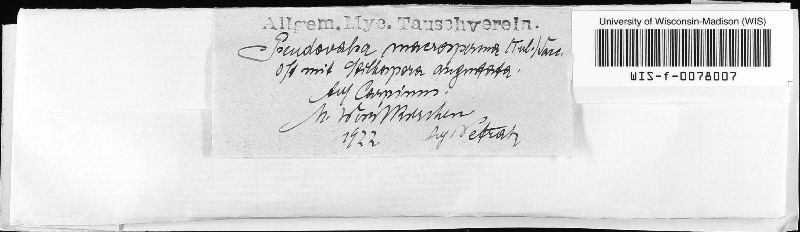 Allgem. Myc. Tauschverein.
Pseudovalsa macrosperma (Tul.) Sacc.
Oft mit angustata.
Auf Carpinus.
M. Weisskirchen,
1922 leg. Petrak
University of Wisconsin-Madison (WIS)
WIS-f-0078007